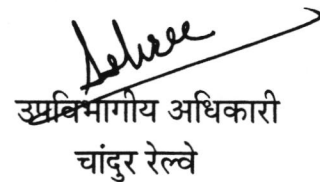 उपविभागीय अधिकारी
चांदुर रेल्वे